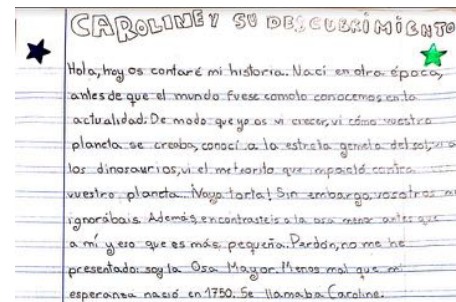 CAROLINE Y SU DESCUBRIMIENTO
Hola, hoy os contaré mi historia. Nací en otra época,
antes de que el mundo fuese como lo conocemos en la
actualidad. De modo que yo os vi crecer, vi cómo vuestro
planeta se creaba, conocí a la estrella gemela del sol, vi a
los dinosaurios, vi el meteorito que impactó contra
vuestro planeta. ¡Vaya torta! Sin embargo, vosotros me
ignorábais. Además, encontrasteis a la osa menor antes que
a mí y eso que es más pequeña. Perdón, no me he
presentado: soy la Osa Mayor. Menos mal que mi
esperanza nació en 1750. Se llamaba Caroline.